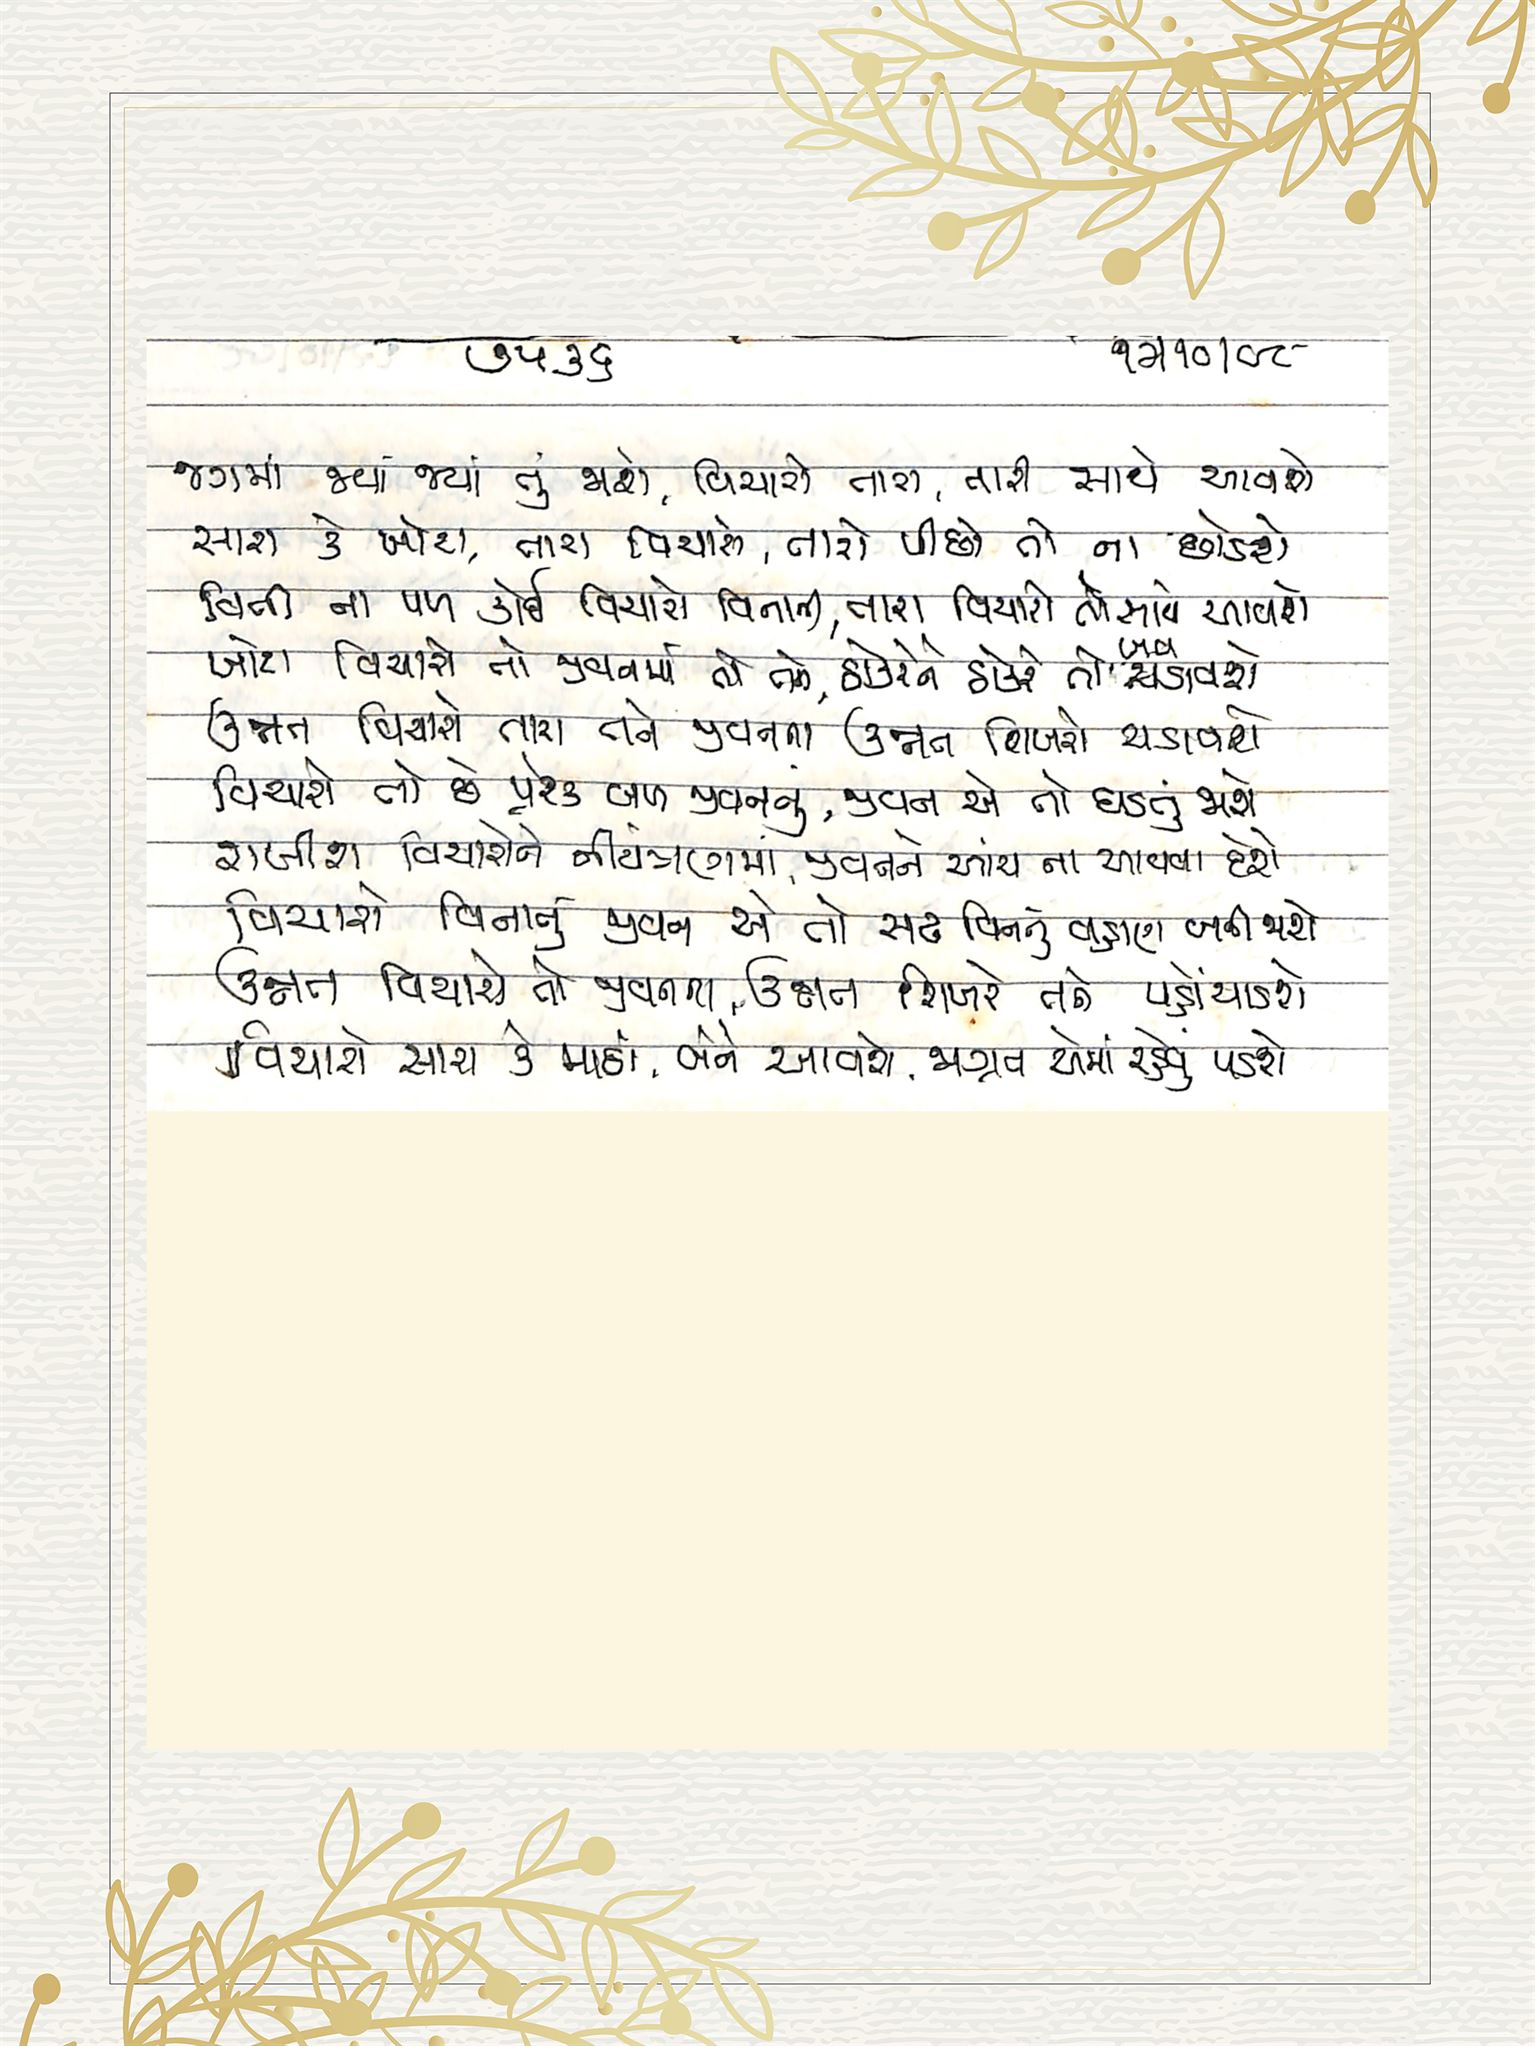 ૭૫૩૬
જગમાં જ્યાં જ્યાં તું જાશે, વિચારો તારા, તારી સાથે આવશે
સારા કે ખોટા, તારા વિચારો, તારો પીછો તો ના છોડશે
વિતી ના પળ કોઈ વિચારો વિનાની, તારા વિચારો તો સાથે આવશે
ખોટા વિચારો તો જીવનમાં તો તને, ઠોકરોને ઠોકરો તો ખવડાવશે
ઉન્નત વિચારો તારા તને જીવનના ઉન્નત શિખરો ચડાવશે
વિચારો તો છે પૂરક બળ જીવનનું, જીવન એ તો ઘડતું જાશે
રાખીશ વિચારોને નીયંત્રણમાં, જીવનને આંચ ના આવવા દેશે
વિચારો વિનાનું જીવન એ તો સઢ વિનનું વહાણ બની જાશે
ઉન્નત વિચારો તો જીવનના, ઉન્નત શિખરે તને પહોંચાડશે
વિચારો સારા કે માઠાં, બંને આવશે, જાગ્રત એમાં રહેવું પડશે